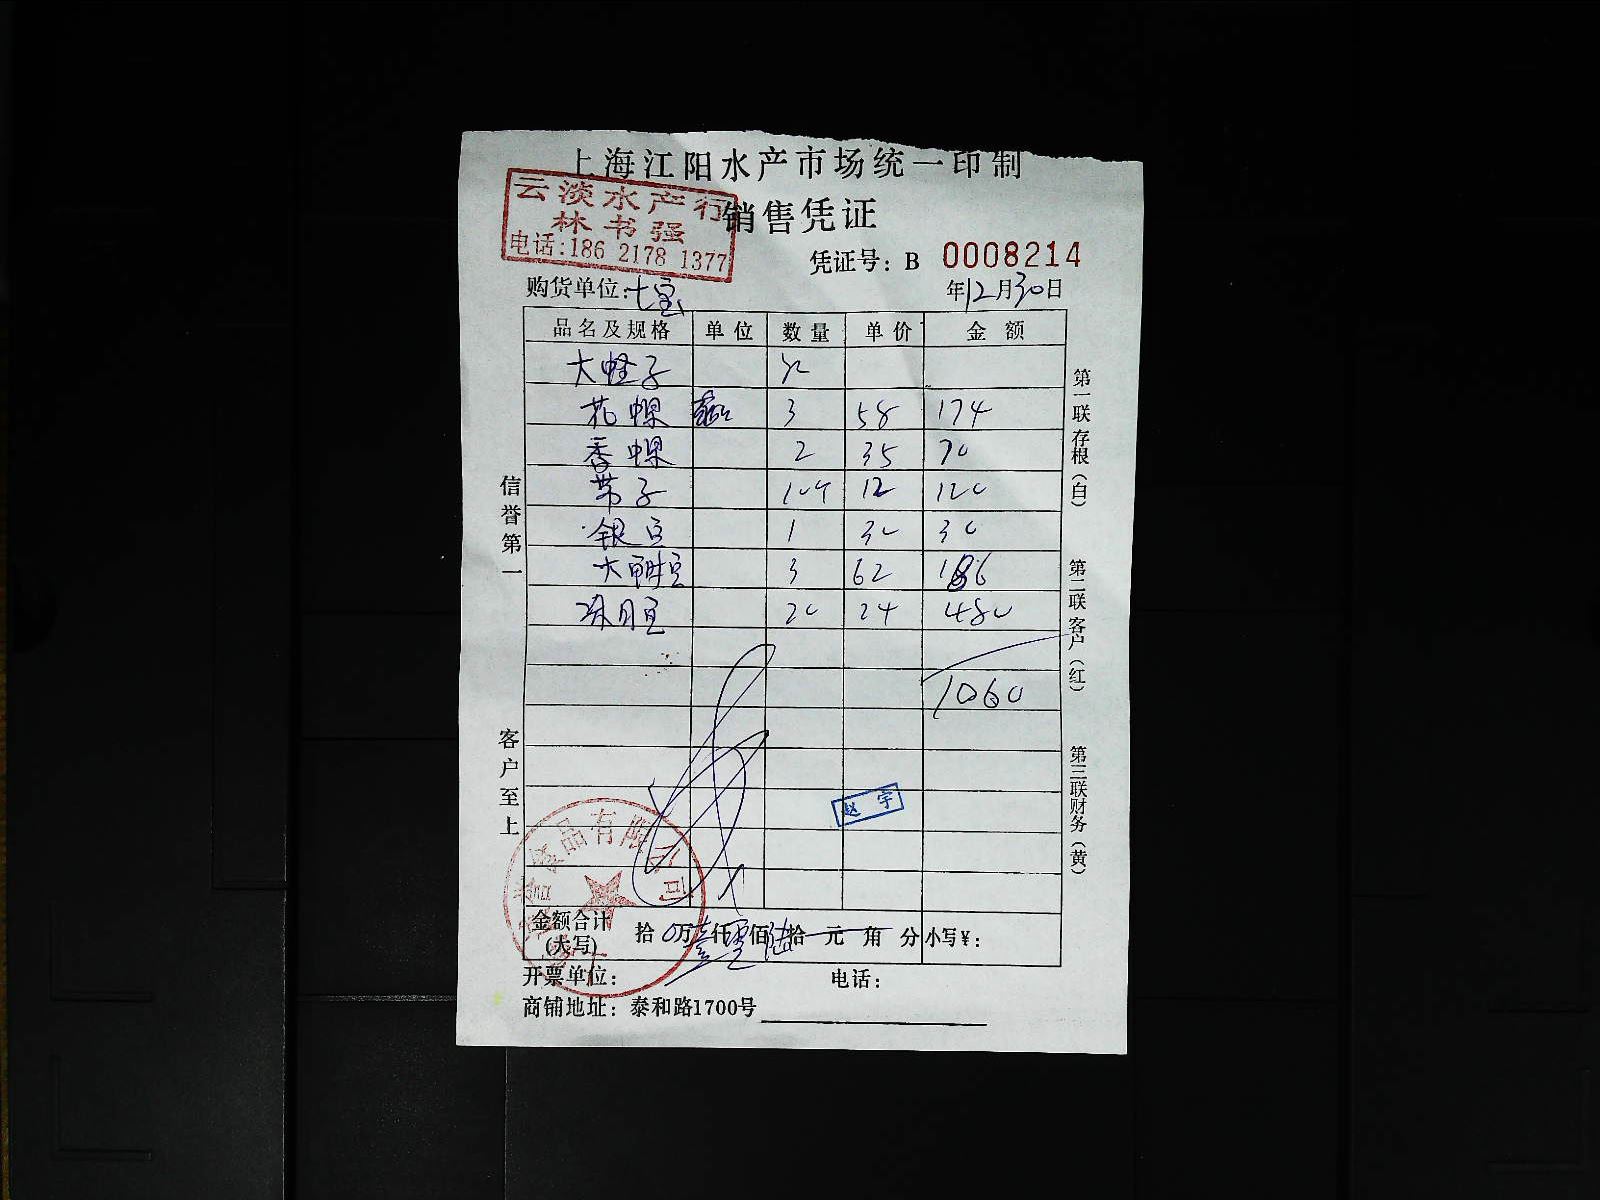 上海江阳水产市场统一印制
云淡水产行
林书强
电话:186 2178 1377
销售凭证
凭证号: B 0008214
购货单位:七宝
年12月30日
品名及规格 单位 数量 单价 金额
大蛏子
花螺 3 58 174
香螺 2 35 70
带子 10个 12 120
银豆 1 30 30
大 3 62 186
20 24 480
1060
赵宇
信誉第一
客户至上
第一联存根(白)
第二联客户(红)
第三联财务(黄)
食品有限公司
金额合计
(大写)
拾0万壹仟零佰陆拾元角分 小写¥:
开票单位: 电话:
商铺地址: 泰和路1700号